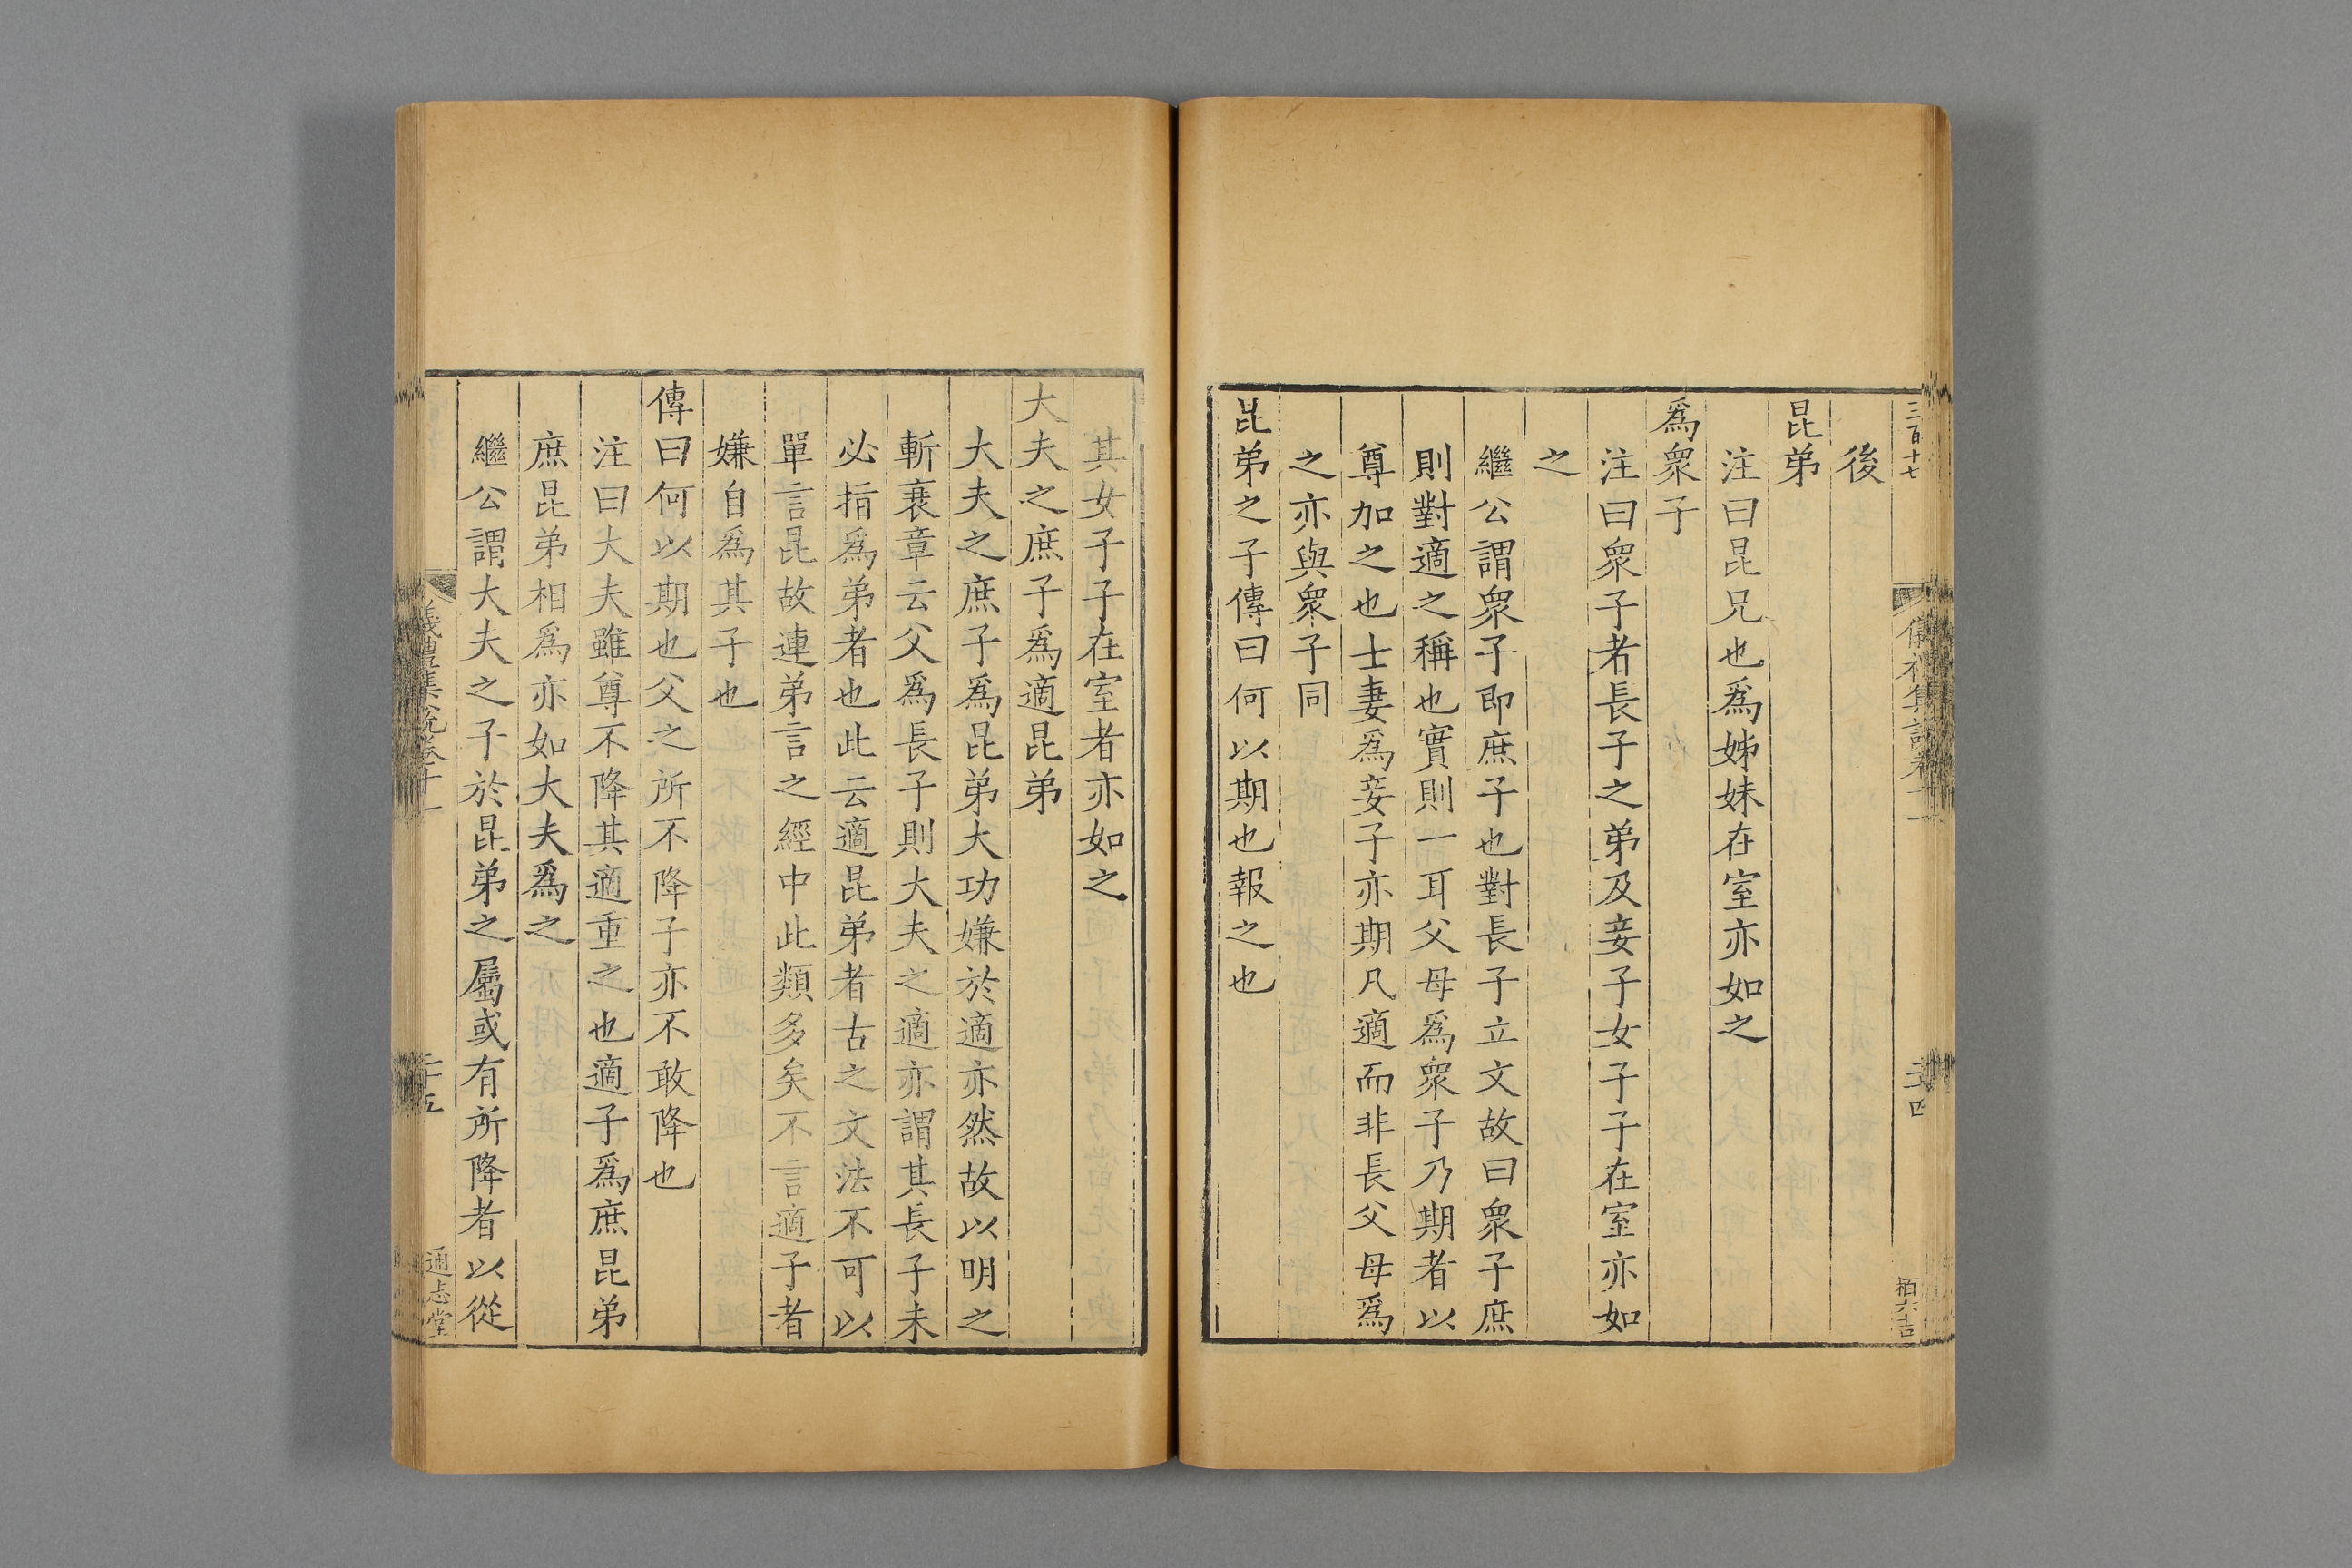 三百十七
後
昆弟
注曰昆兄也爲姊妹在室亦如之
爲衆子
注曰衆子者長子之弟及妾子女子子在室亦如
之
繼公謂衆子即庶子也對長子立文故曰衆子庶
則對適之稱也實則一耳父母爲衆子乃期者以
尊加之也士妻爲妾子亦期凡適而非長父母爲
之亦與衆子同
昆弟之子傳曰何以期也報之也
其女子子在室者亦如之
大夫之庶子爲適昆弟
大夫之庶子爲昆弟大功嫌於適亦然故以明之
斬衰章云父爲長子則大夫之適亦謂其長子未
必指爲弟者也此云適昆弟者古之文法不可以
單言昆故連弟言之經中此類多矣不言適子者
嫌自爲其子也
傳曰何以期也父之所不降子亦不敢降也
注曰大夫雖尊不降其適重之也適子爲庶昆弟
庶昆弟相爲亦如大夫爲之
繼公謂大夫之子於昆弟之屬或有所降者以從
儀禮集說卷十一
二十五
通志堂